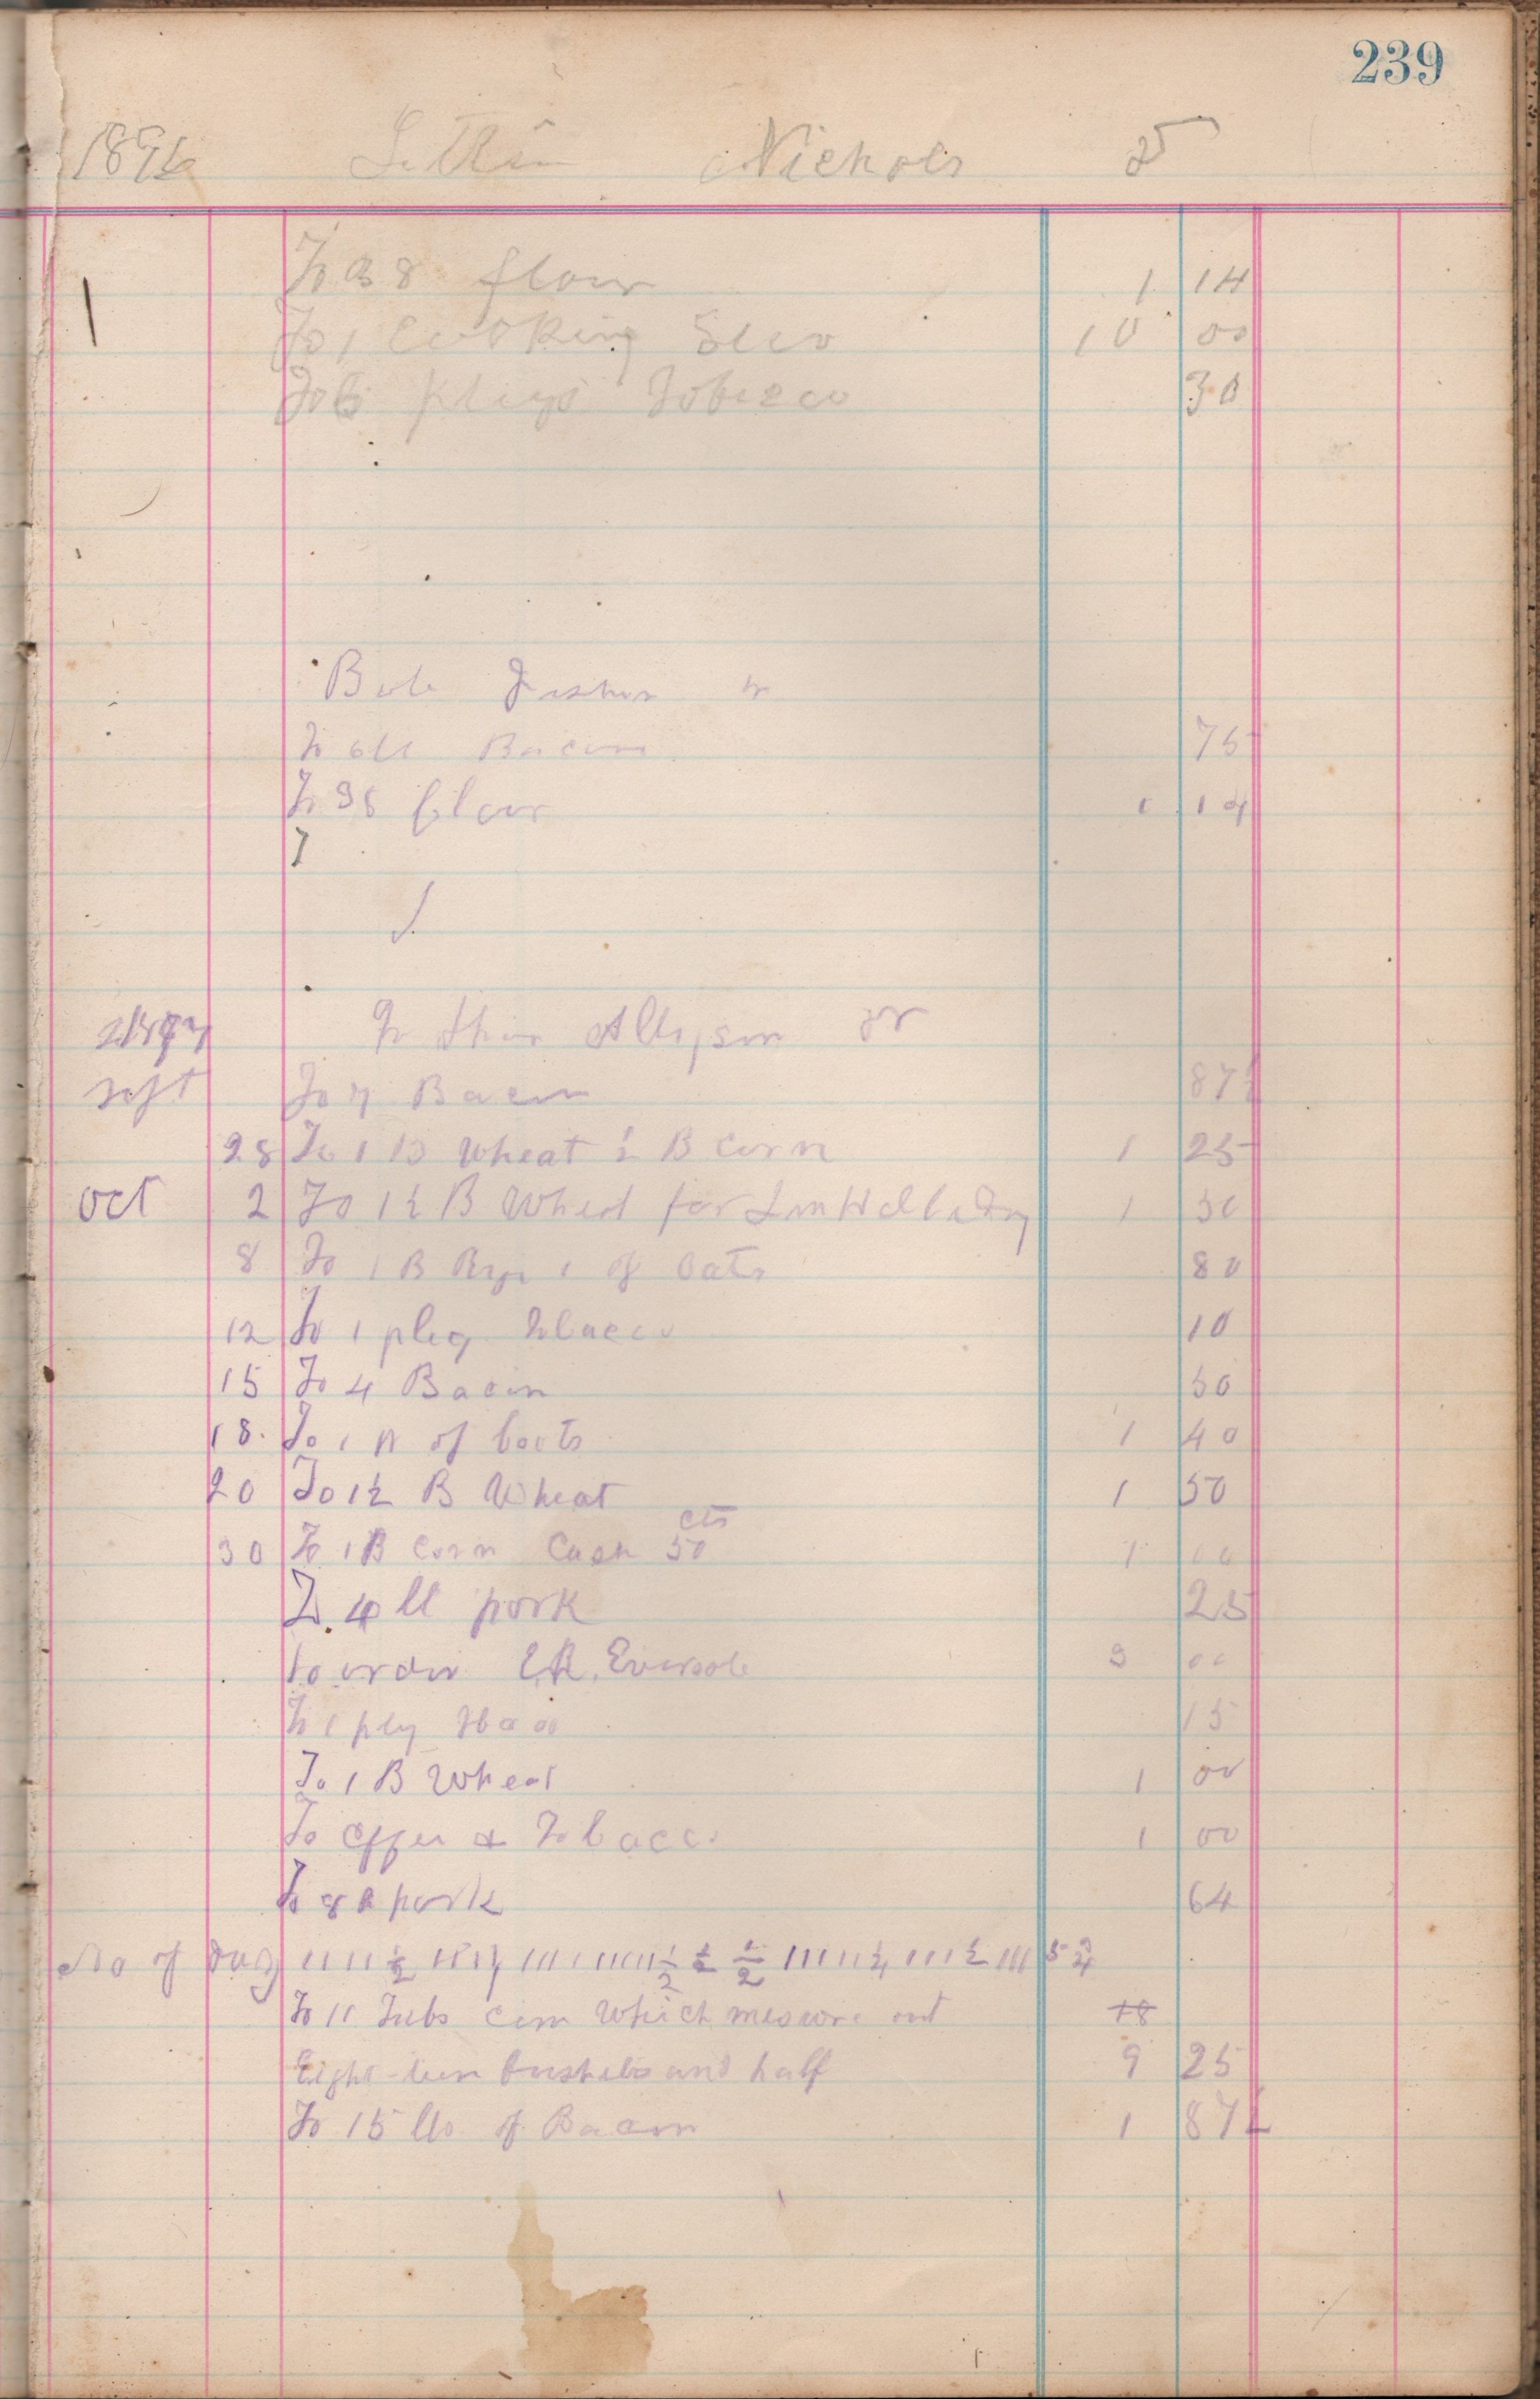 239
1896 Nichols
To 38 flour 1 14
To 1 Cooking 10 00
To 3 plugs Tobacco 30
Bob
To 6 ll Bacon 75
To 38 flour 1 14
1897 Allipson Dr
Sept To 7 Bacon 87½
28 To 1 B Wheat ½ B Corn 1 25
Oct 2 To 1½ B Wheat for 1 50
8 To 1 B Rye 1 of Oats 80
12 To 1 pleg Tobacco 10
15 To 4 Bacon 50
18 To 1 pr of boots 1 40
20 To 1½ B Wheat 1 50
30 To 1 B Corn Cash 50 cts 1 00
To 4 ll pork 25
to order E.R. Eversole 3 00
To 1 plg 15
To 1 B Wheat 1 00
To Coffee & Tobacco 1 00
To 8 pork 64
No of Days
To 11 Tubs Corn Which measure out 18
Eight-teen bushels and half 9 25
To 15 lls of Bacon 1 87½